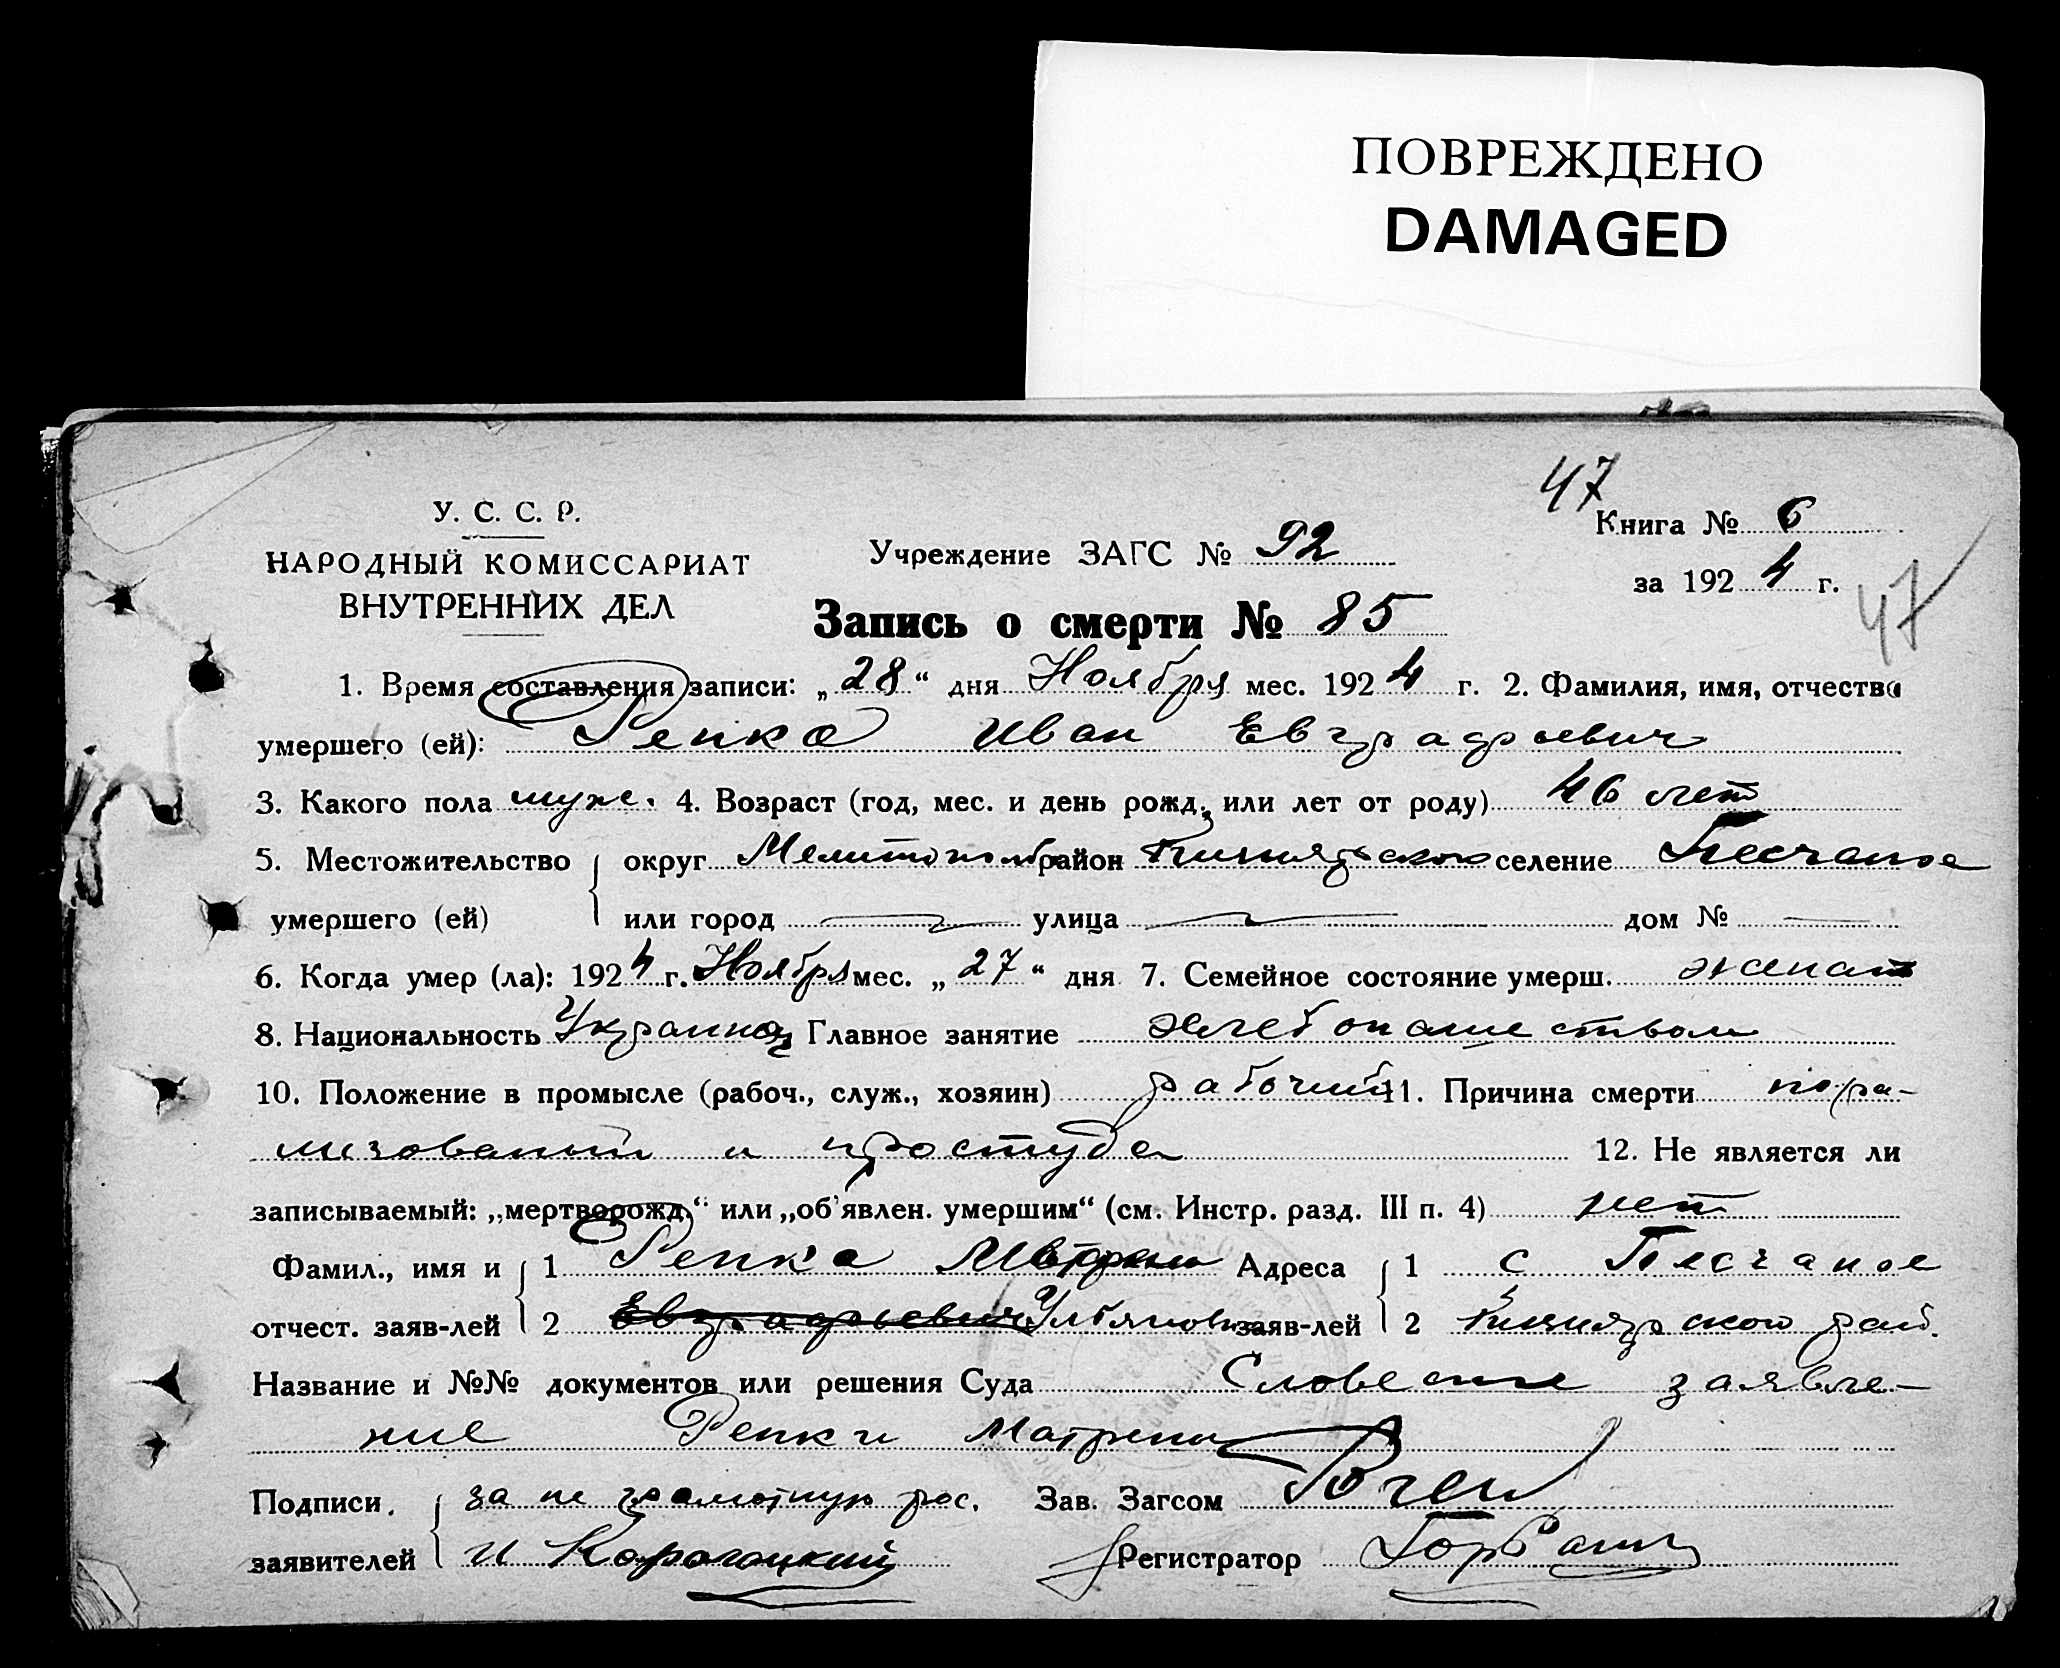 ПОВРЕЖДЕНО
DAMAGED
47
У. С. С. Р.
НАРОДНЫЙ КОМИССАРИАТ
ВНУТРЕННИХ ДЕЛ
Учреждение ЗАГС № 92
Книга № 6
за 1924 г.
47
Запись о смерти № 85
1. Время составления записи: „28“ дня Ноября мес. 1924 г. 2. Фамилия, имя, отчество
умершего (ей): Репка Иван Евграфьевич
3. Какого пола муж. 4. Возраст (год, мес. и день рожд. или лет от роду) 46 лет
5. Местожительство округ Мелитополь район селение Песчаное
умершего (ей) или город — улица — дом № —
6. Когда умер (ла): 1924 г. Ноября мес. „27“ дня 7. Семейное состояние умерш. женат
8. Национальность Украинец Главное занятие хлебопашеством
10. Положение в промысле (рабоч., служ., хозяин) рабочий 11. Причина смерти пара-
лизованый и простуда 12. Не является ли
записываемый: „мертворожд.“ или „об'явлен. умершим“ (см. Инстр. разд. III п. 4) нет
Фамил., имя и 1 Репка Матрена Адреса 1 с Песчаное
отчест. заяв-лей 2 Евграфьевич Ульяновна заяв-лей 2 рай.
Название и №№ документов или решения Суда Словесное заявле-
ние Репки Матрены
Подписи за не грамотную рос. Зав. Загсом
заявителей И Регистратор